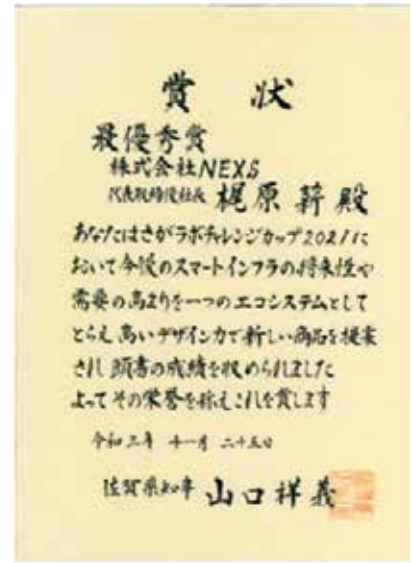 賞 状
最優秀賞
株式会社NEXS
代表取締役社長 梶原 殿
あなたはさがラボチャレンジカップ2021に
おいて今後のスマートインフラの将来性や
需要の高まりを一つのエコシステムとして
とらえ高いデザイン力で新しい商品を提案
され 頭書の成績を収められました
よってその栄誉を称えこれを賞します
令和三年 十一月 二十五日
佐賀県知事 山口祥義